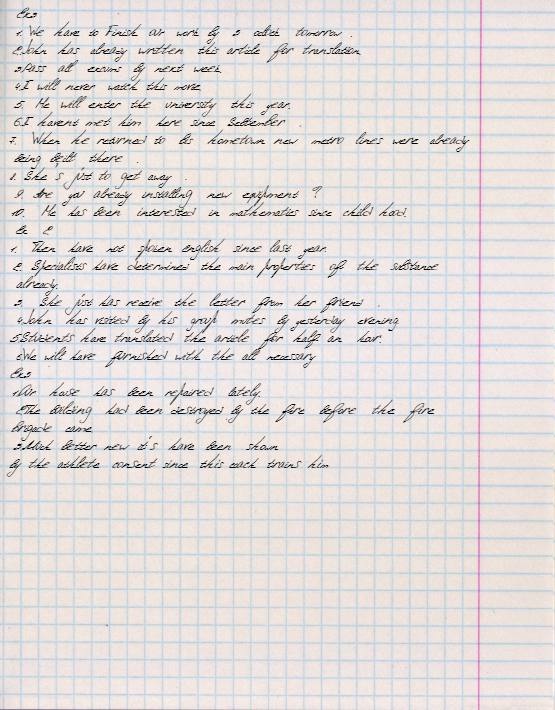 Ex 2
1. We have to Finish our work by 2 oclock tomorrow.
2. John has already written this article for translation
3. Pass all exams by next week
4. I will never watch this movie
5. He will enter the university this year.
6. I havent met him here since September.
7. When he returned to his hometown new metro lines were already
being built there.
8. She's just to get away.
9. Are you already installing new equipment?
10. He has been interested in mathematics since child hood.
Ex 2
1. Then have not spoken english since last year.
2. Specialists have determined the main properties off the substance
already.
3. She just has receive the letter from her friend.
4. John has visited by his group mates by yesterday evening
5. Students have translated the article for half an hour.
6. We will have furnished with the all necessary
Ex 3
1. Our house has been repaired lately.
2. The building had been destroyed by the fire before the fire
brigade came
3. Much better new d's have been shown
by the athlete consent since this coach trains him